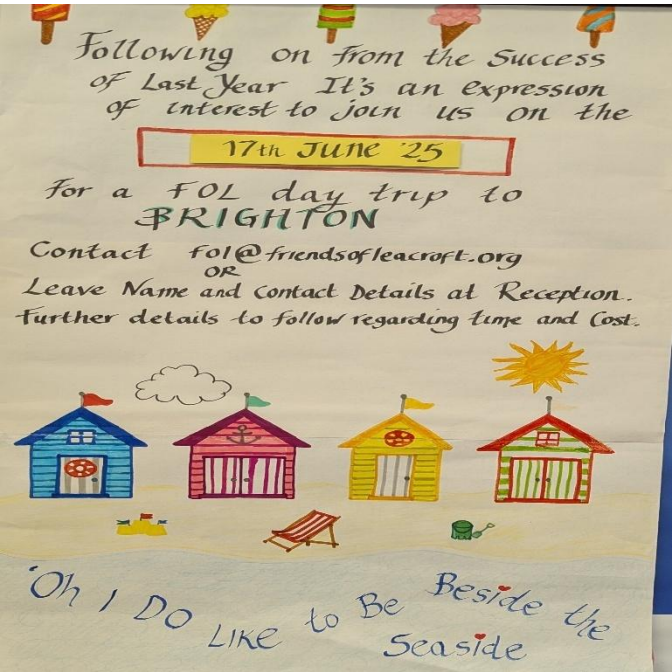 Following on from the Success
of Last Year It's an expression
of interest to join us on the
17th June '25
For a FOL day trip to
BRIGHTON
Contact fol@friendsofleacroft.org
OR
Leave Name and Contact Details at Reception.
Further details to follow regarding time and Cost.
'Oh I Do LIKE to Be Beside the
Seaside